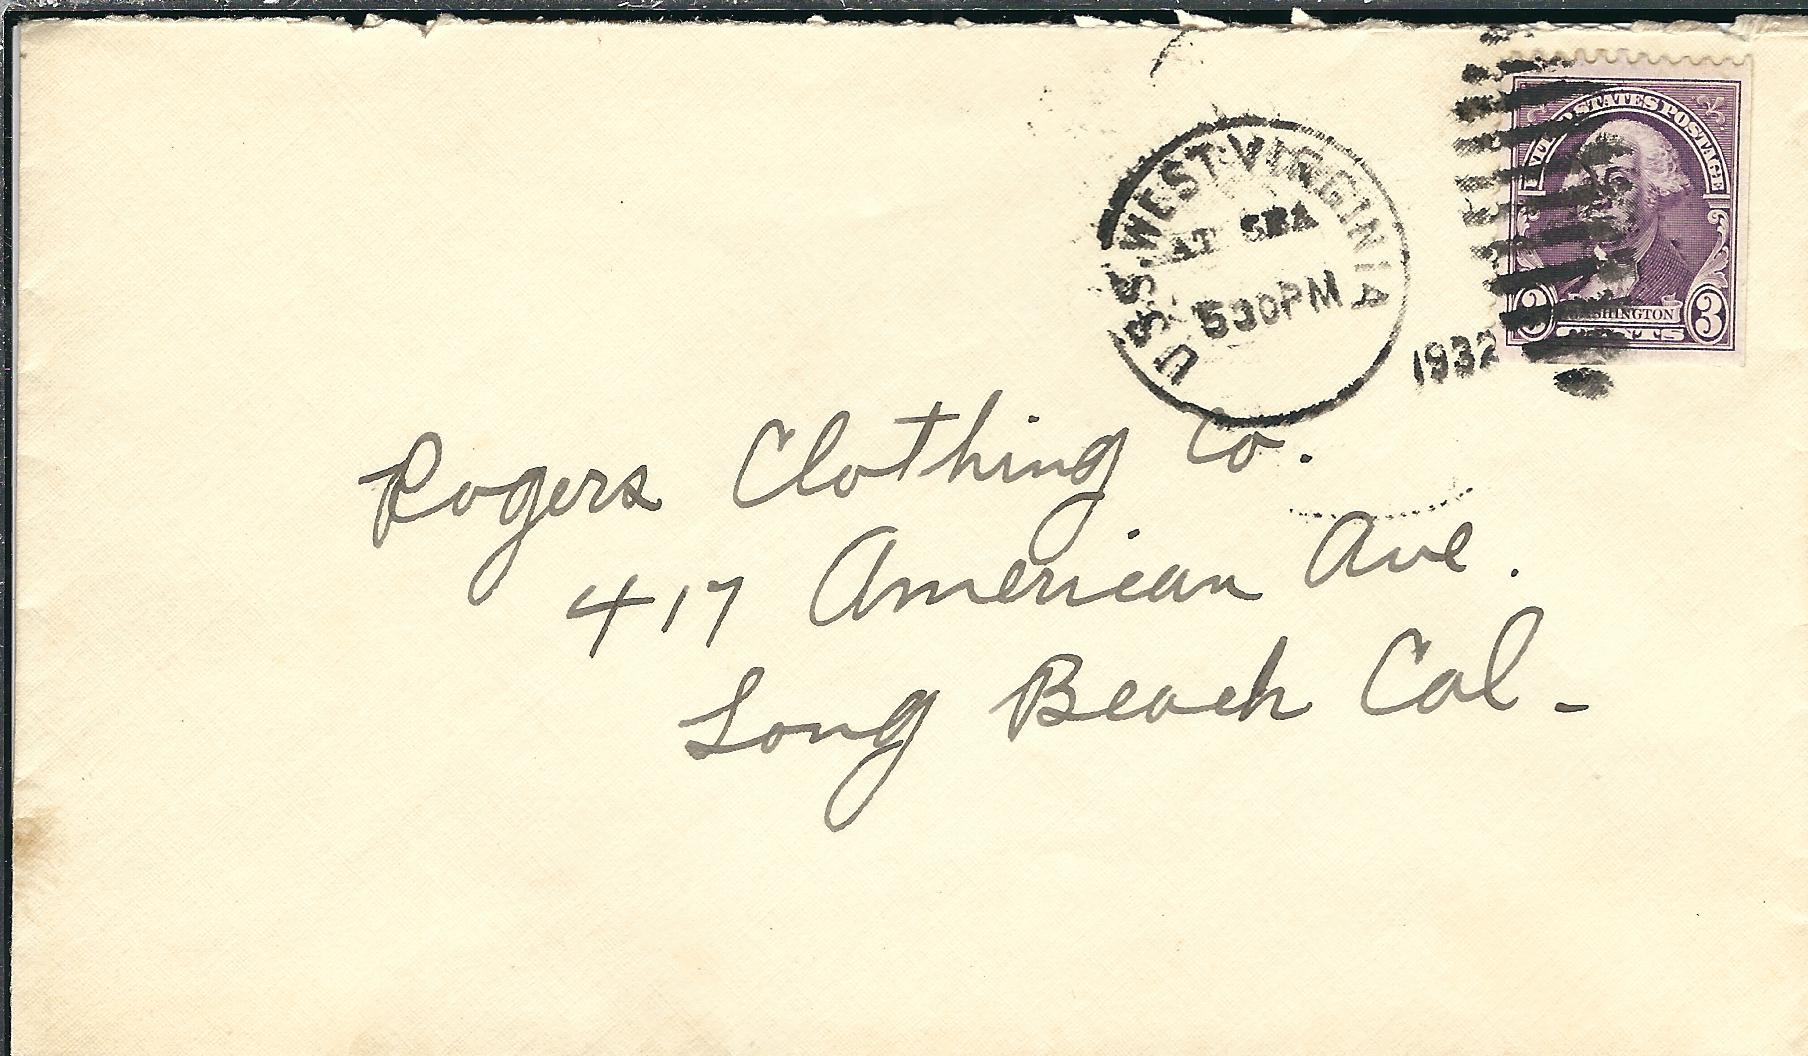 U.S.S. WEST VIRGINIA
AT SEA
530PM
1932
UNITED STATES POSTAGE
3 WASHINGTON 3
CENTS
Rogers Clothing Co.
417 American Ave.
Long Beach Cal-